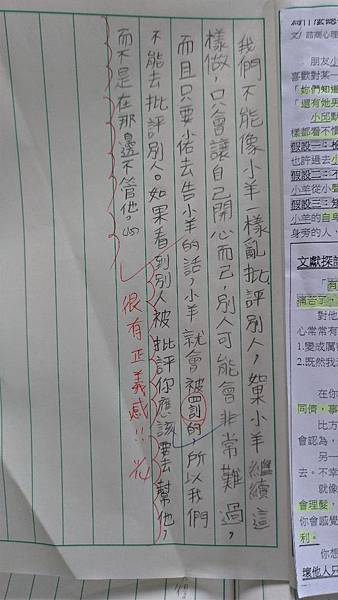 我們不能像小羊一樣亂批評別人,如果小羊繼續這
樣做,只會讓自己開心而已,別人可能會非常難過,
而且只要小佑去告小羊的話,小羊就會被罰的,所以我們
不能去批評別人。如果看到別人被批評你應該要去幫他,
而不是在那邊不管他。
很有正義感!!
文/諮商心理
朋友小
喜歡對某一
「妳們知道
「還有她男
小邱
樣都看不慣
假設一:
也許過去小
假設二:不
小羊從小
假設三:
小羊的自卑
身旁的人,
文獻探
痛苦了,
對他
心常常有
1.變成厲
2.既然我
在你
同儕,事
比方
會認為,
另一
去。不幸
就像
會理髮,
你會感覺
利。
你想
壞他人只